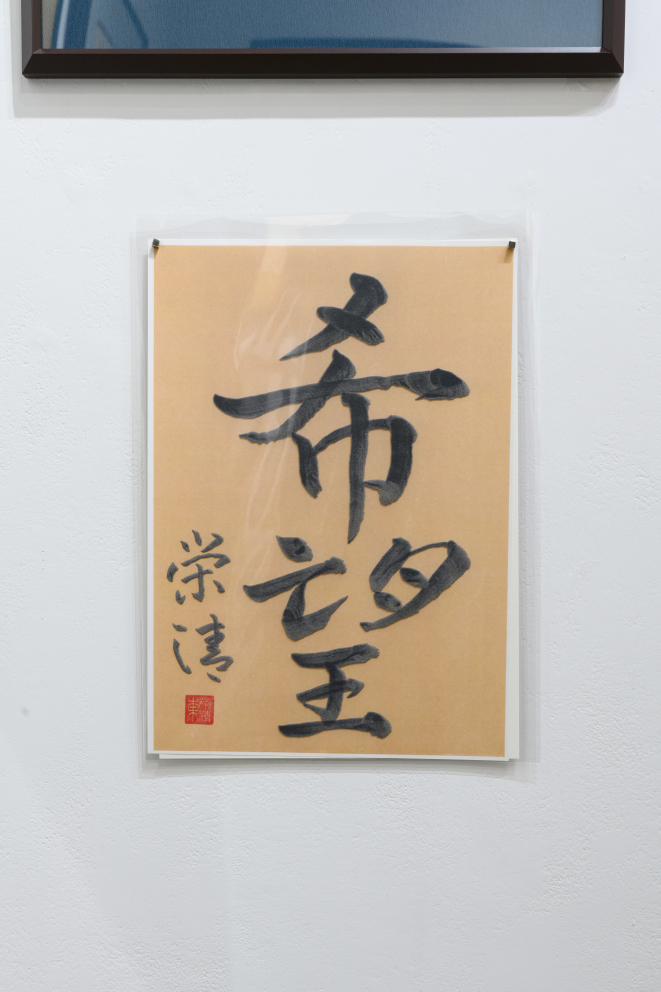 希望
栄清